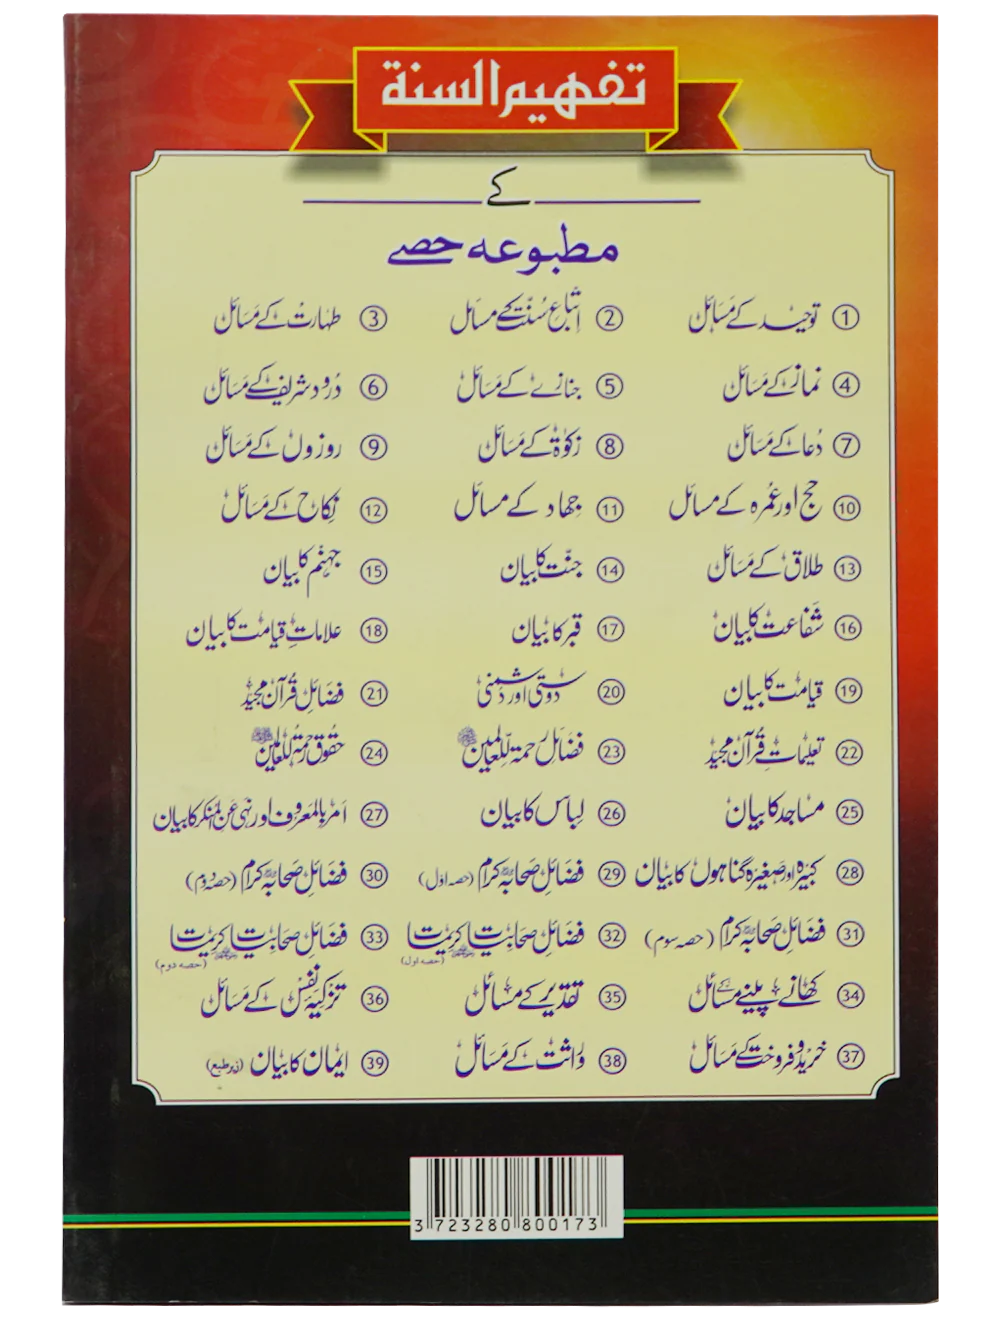 تفہیم السنة
کے
مطبوعہ حصے
① توحید کے مَسَائل ② اتباعِ سُنّت کے مسائل ③ طہارت کے مَسَائل
④ نماز کے مَسَائل ⑤ جنازے کے مَسَائل ⑥ دُرود شریف کے مَسَائل
⑦ دُعا کے مَسَائل ⑧ زکوٰة کے مَسَائل ⑨ روزوں کے مَسَائل
⑩ حج اور عُمرہ کے مسائل ⑪ جهاد کے مسائل ⑫ نِکاح کے مَسَائل
⑬ طلاق کے مَسَائل ⑭ جنّت کا بیان ⑮ جہنّم کا بیان
⑯ شفاعت کا بیان ⑰ قبر کا بیان ⑱ علاماتِ قیامت کا بیان
⑲ قیامت کا بیان ⑳ دوستی اور دُشمنی ㉑ فضائلِ قُرآن مجید
㉒ تعلیماتِ قُرآن مجید ㉓ فضائل رحمۃ لِّلعالمین ﷺ ㉔ حقوق رحمۃ للعالمین ﷺ
㉕ مساجد کا بیان ㉖ لباس کا بیان ㉗ اَمر بالمعروف اور نہی عَنِ المنکر کا بیان
㉘ کبیرہ اور صغیرہ گناہوں کا بیان ㉙ فضائلِ صَحابہ کرام (حصہ اول) ㉚ فضائلِ صَحابہ کرام (حصہ دوم)
㉛ فضائلِ صَحابہ کرام (حصہ سوم) ㉜ فضائلِ صَحابیات کریمات (حصہ اول) ㉝ فضائلِ صَحابیات کریمات (حصہ دوم)
㉞ کھانے پینے کے مسائل ㉟ تقدیر کے مسائل ㊱ تزکیۂ نفس کے مَسَائل
㊲ خرید و فروخت کے مَسَائل ㊳ وراثت کے مَسَائل ㊴ ایمان کا بیان (زیر طبع)
3 723280 800173